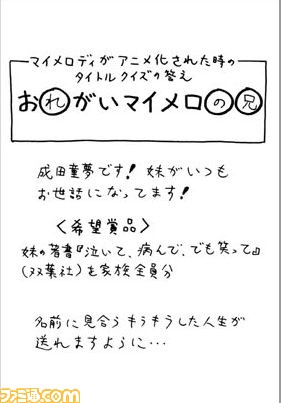 マイメロディがアニメ化された時の
タイトルクイズの答え
おれがいマイメロの兄
成田童夢です！妹がいつも
お世話になってます！
＜希望賞品＞
妹の著書『泣いて、病んで、でも笑って』
(双葉社)を家族全員分
名前に見合うキラキラした人生が
送れますように…
ファミ通.com